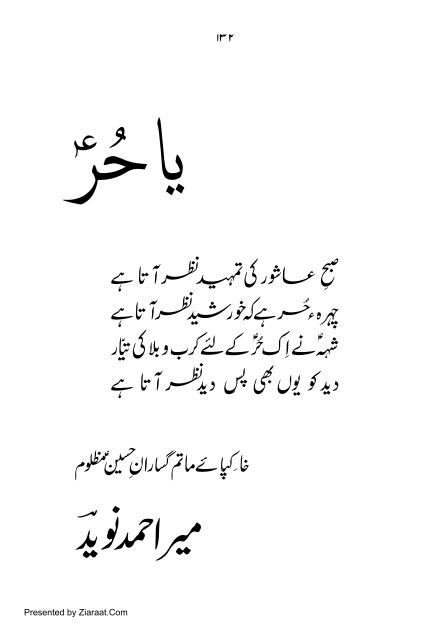 ۱۳۲
یا حُرؑ
صبحِ عاشور کی تمہید نظر آتا ہے
چہرہء حُر ہے کہ خورشید نظر آتا ہے
شہہؑ نے اِک حُرؑ کے لئے کرب و بلا کی تیّار
دید کو یوں بھی پس دید نظر آتا ہے
خاکپائے ماتم گسارانِ حسینؑ مظلوم
میر احمد نویدؔ
Presented by Ziaraat.Com